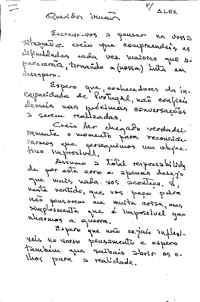 ALEX
Queridos irmãos
Escrevo-vos a pensar na vossa
situação e creio que compreendeis as
dificuldades cada vez maiores que a-
parecerão, tornando a (vossa) luta em
desespero.
Espero que, conhecedores da in-
capacidade de Portugal, não confieis
demais nas próximas conversações
a serem realizadas.
Creio ter chegado verdadei-
ramente o momento para reconside-
rarmos que perseguimos um objec-
tivo impossível.
Assumo a total responsabilida-
de por este erro e apenas desejo
que mais nada vos aconteça. É,
neste sentido, que vos peço para
não pensarem em muita coisa, mas
simplesmente que é impossível ga-
nharmos a guerra.
Espero que não sejais infle-
xíveis no vosso pensamento e espero
também que saibais abrir os o-
lhos para a realidade.